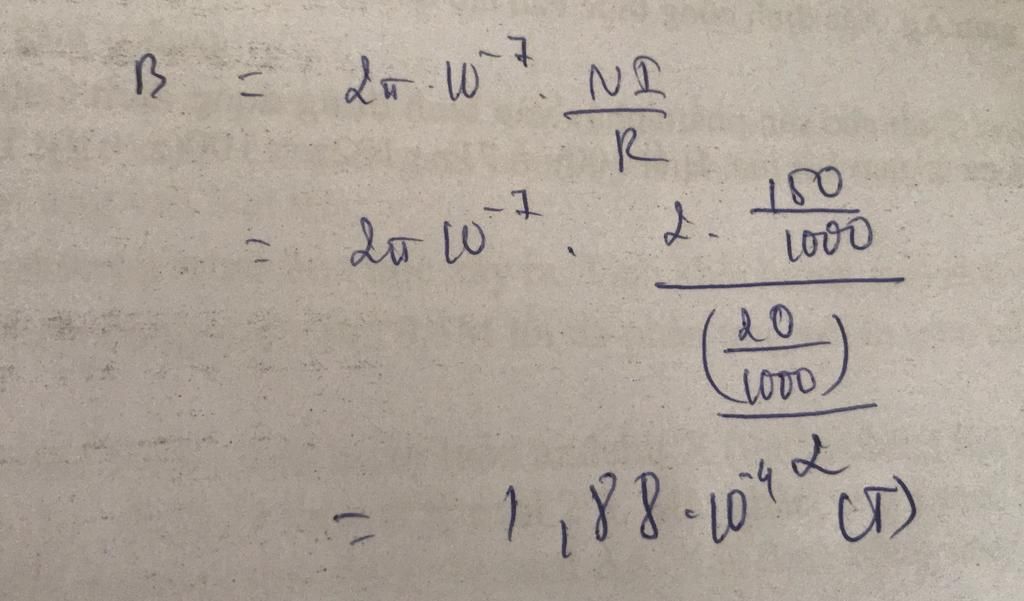 B = 2π · 10⁻⁷ · NI / R
= 2π 10⁻⁷ · (2 · 150/1000) / ((20/1000) / 2)
= 1,88 · 10⁻⁴ (T)